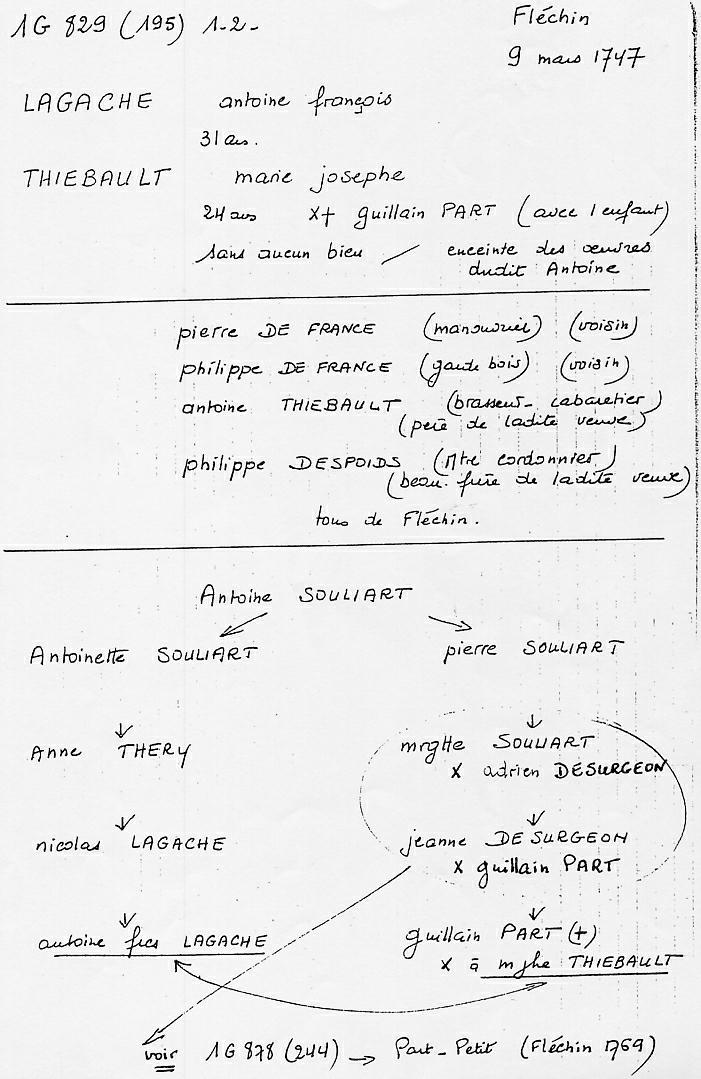 1G 829 (195) 1-2-
Fléchin
9 mars 1747
LAGACHE antoine françois
31 ans.
THIEBAULT marie josephe
24 ans x+ guillain PART (avec 1 enfant)
sans aucun bien / enceinte des œuvres
dudit Antoine
pierre DE FRANCE (manouvrier) (voisin)
philippe DE FRANCE (garde bois) (voisin)
antoine THIEBAULT (brasseur-cabaretier)
(père de ladite veuve)
philippe DESPOIDS (Mtre cordonnier)
(beau-frère de ladite veuve)
tous de Fléchin.
Antoine SOULIART
Antoinette SOULIART pierre SOULIART
Anne THERY mrgtte SOULIART
x adrien DESURGEON
nicolas LAGACHE jeanne DESURGEON
x guillain PART
antoine fcs LAGACHE guillain PART (+)
x à mjhe THIEBAULT
voir 1G 878 (244) → Part-Petit (Fléchin 1769)